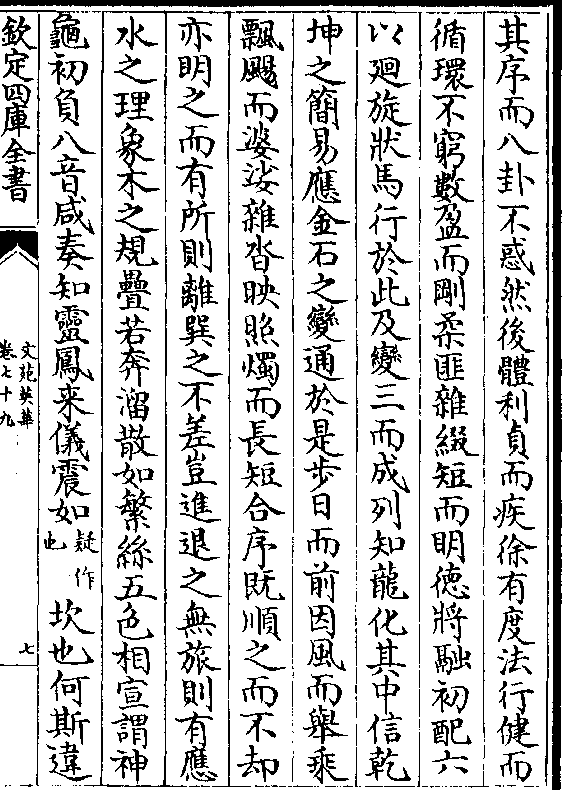 其序而八卦不惑然後體利貞而疾徐有度法行健而
循環不窮數盈而剛柔匪雜綴短而明德將融初配六
以廻旋狀馬行於此及變三而成列知龍化其中信乾
坤之簡易應金石之變通於是步日而前因風而舉乘
飄颺而婆娑雜沓映照燭而長短合序既順之而不却
亦明之而有所則離巽之不差豈進退之無旅則有應
水之理象木之規疊若奔溜散如繁絲五色相宣謂神
龜初負八音咸奏知靈鳳来儀震如疑作也坎也何斯違
欽定四庫全書
文苑英華
卷七十九
七